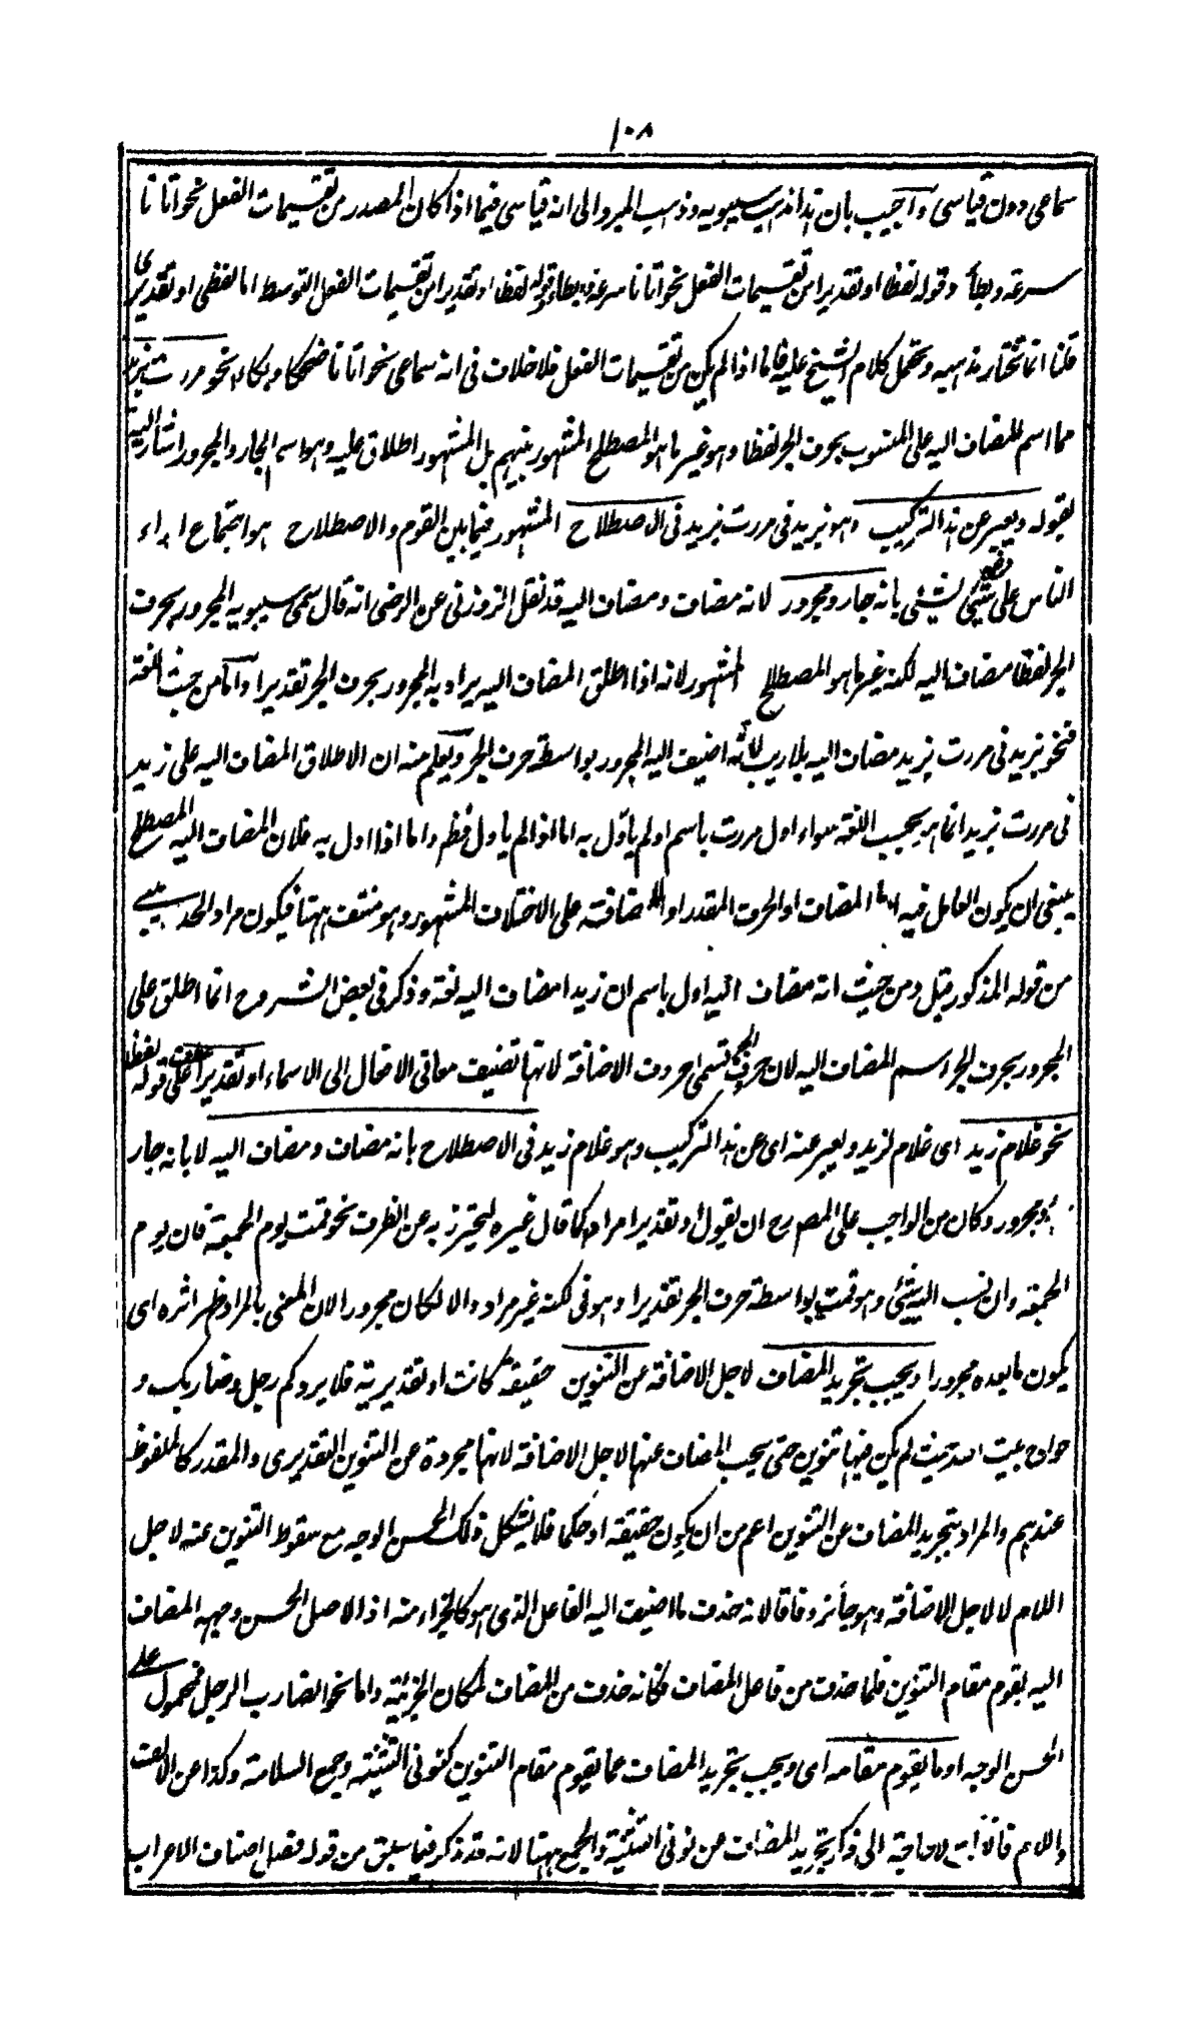 ١٠٨
سماعى دون قياسى وأجيب بان هذا مذهب سيبويه وذهب المبرد الى انه قياسى فيما اذا كان المصدر من تقسيمات الفعل نحو اتانا
سرعة وبطأ وقوله لفظا او تقديرا من تقسيمات الفعل نحو اتانا سرعة وبطاء وقوله لفظا او تقديرا من تقسيمات الفعل التوسط اما لفظى او تقديرى
قلنا انما نختار مذهبه ونحمل كلام الشيخ عليه فاما اذا لم يكن من تقسيمات الفعل فلا خلاف فى انه سماعى نحو اتانا ضحكا وبكاء نحو مررت بزيد
مما اسم للمضاف اليه على المنسوب بحرف الجر لفظا وهو غير ما هو المصطلح المشهور بينهم بل المشهور اطلاق عليه وهو اسم الجار والمجرور اشار اليه
بقوله ويعبر عن هذا التركيب وهو بزيد فى مررت بزيد فى الاصطلاح المشهور فيما بين القوم والاصطلاح هو اجتماع اراء
الناس على شئ لشئ بانه جار ومجرور لانه مضاف ومضاف اليه قد نقل الزوزنى عن الرضى انه قال سمى سيبويه المجرور بحرف
الجر لفظا مضاف اليه لكنه غير ما هو المصطلح المشهور لانه اذا اطلق المضاف اليه يراد به المجرور بحرف الجر تقديرا واما من حيث اللغة
فنحو بزيد فى مررت بزيد مضاف اليه بلا ريب لانه اضيف اليه المجرور بواسطة حرف الجر ويعلم منه ان الاطلاق المضاف اليه على زيد
فى مررت بزيد انما هو بحسب اللغة سواء اول مررت باسم او لم يأول به اما اذا لم ياول فظهر واما اذا اول به فلان المضاف اليه المصطلح
ينبغى ان يكون العامل فيه اما المضاف او الحرف المقدر او الاضافة على الاختلاف المشهور وهو منتف ههنا فيكون مراد الحديبى
من قوله المذكور قبل ومن حيث انه مضاف اليه اول باسم ان زيدا مضاف اليه لغة وذكر فى بعض الشروح انما اطلق على
المجرور بحرف الجر اسم المضاف اليه لان حروف الجر تسمى حروف الاضافة لانها تضيف معانى الافعال الى الاسماء او تقديرا عطف على قوله لفظا
نحو غلام زيد اى غلام لزيد ويعبر عنه اى عن هذا التركيب وهو غلام زيد فى الاصطلاح بانه مضاف ومضاف اليه لا بانه جار
ومجرور وكان من الواجب على المص رح ان يقول او تقديرا مرادا كما قال غيره ليحترز به عن الظرف نحو قمت يوم الجمعة فان يوم
الجمعة وان نسب اليه شئ وهو قمت بواسطة حرف الجر تقديرا وهو فى لكنه غير مراد والا لكان مجرورا لان المعنى بالمراد ظهر اثره اى
يكون ما بعده مجرورا ويجب تجريد المضاف لاجل الاضافة عن التنوين حقيقة كانت او تقديرية فلا يرد كم رجل وضاربك و
حواج بيت الله حيث لم يكن فيها تنوين حتى يجب المضاف عنها لاجل الاضافة لانها مجردة عن التنوين التقديرى والمقدر كالملفوظ
عندهم والمراد بتجريد المضاف عن التنوين اعم من ان يكون حقيقة او حكما فلا يشكل ذلك الحسن الوجه مع سقوط التنوين عنه لاجل
اللام لا لاجل الاضافة وهو جائز وفاقا لانه حذف ما اضيف اليه الفاعل الذى هو كالجزاء منه اذ الاصل الحسن وجهه المضاف
اليه يقوم مقام التنوين فلما حذف من فاعل المضاف فكانه حذف من المضاف لمكان الجزئية واما نحو الضارب الرجل فمحمول على
الحسن الوجه او ما يقوم مقامه اى ويجب تجريد المضاف عما يقوم مقام التنوين كنونى التثنية وجمع السلامة وكذا عن الالف
واللام فان لا حاجة الى ذكر تجريد المضاف عن نونى التثنية والجمع ههنا لانه قد ذكر فيما سبق من قوله فصل اصناف الاعراب